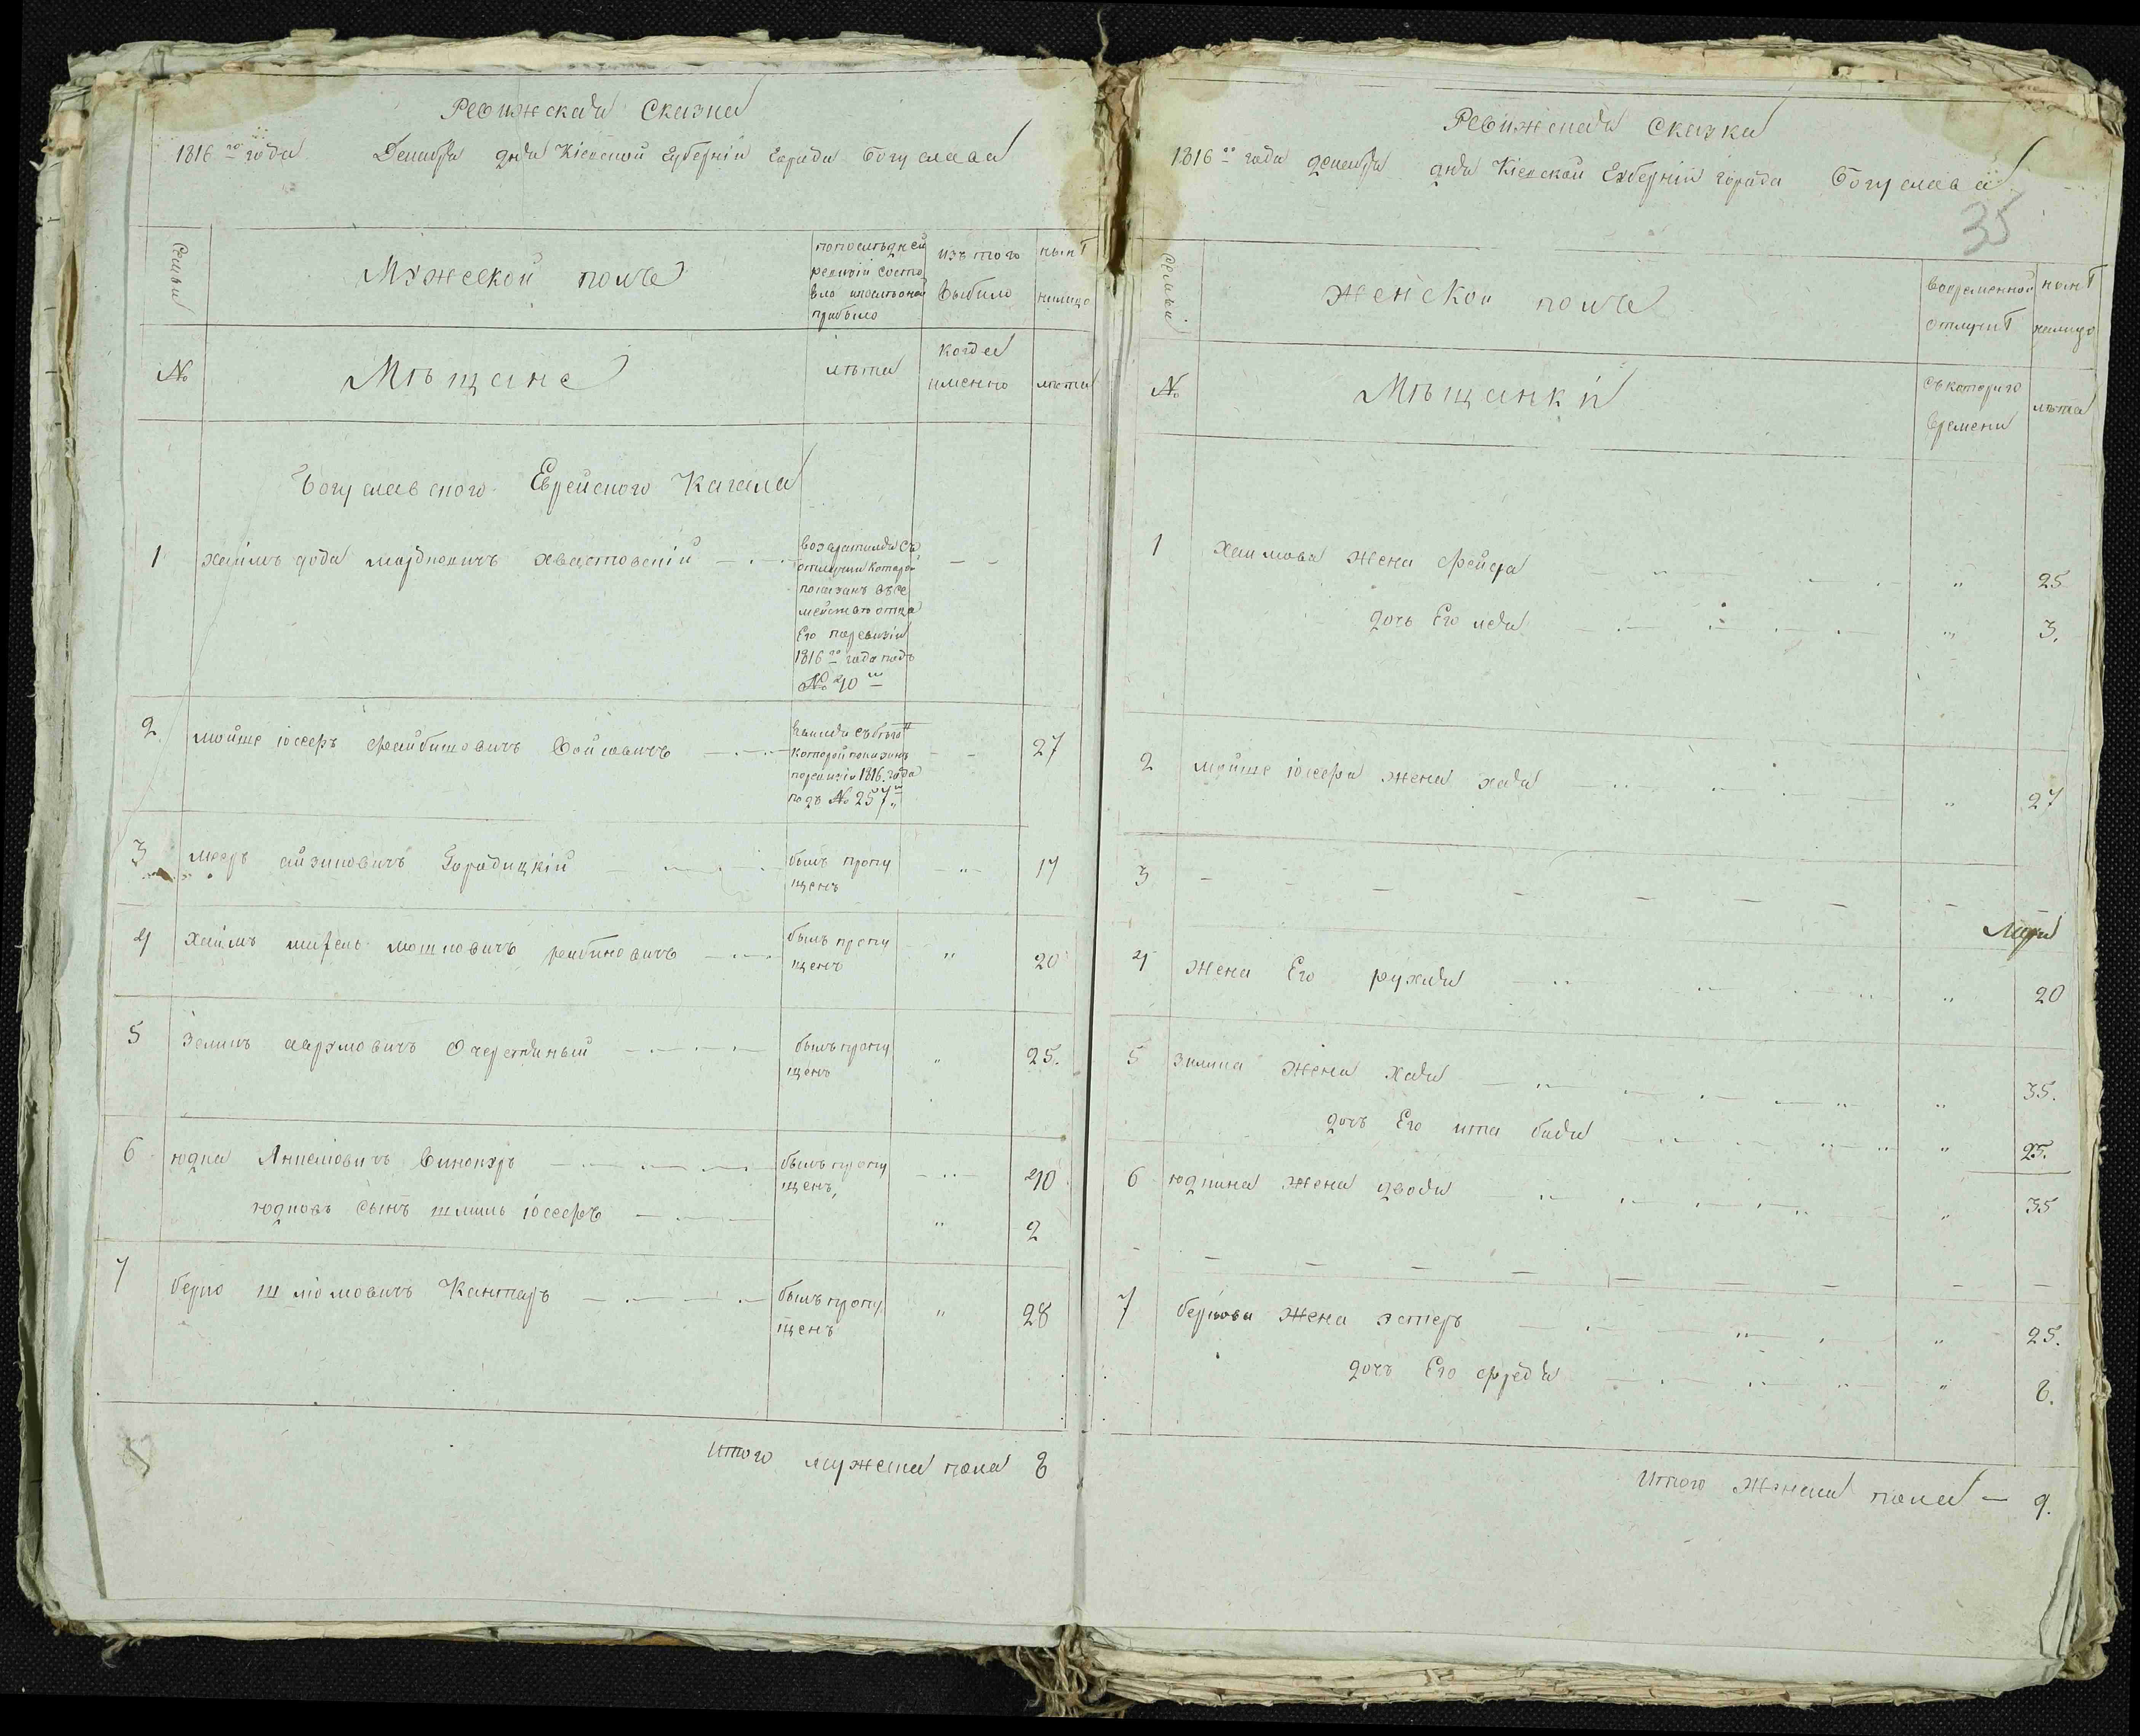 Ревижская Сказка
1816го года Декабря дня Кіевской Губерніи Города Богуслава
Семьи
Мужескои полъ
попослѣдней ревизіи состояло и послѣ оной прибыло
изъ того выбило
нынѣ налицо
№
Мѣщане
лѣта
когда именно
лѣта
Богуславского Еврейского Кагала
1 хаимъ дода мордковичъ хвастовскій
возвратился съ
отлучки которой
показанъ въ се
мействѣ отца
Его поревизіи
1816го года подъ
№ 40м
2 мойше іосефъ файбишовичъ
которой показанъ
поревизіи 1816 года
подъ № 257м
27
3 мееръ айзиковичъ Городицкій
былъ пропу
щенъ
17
4 Хаимъ мошковичъ рабиновичъ
былъ пропу
щенъ
20
5 Зеликъ Очеретяный
былъ пропу
щенъ
25.
6 юдка Винокуръ
былъ пропу
щенъ,
40
юдковъ сынъ шлиомъ іосефъ
2
7 берко шліомовичъ Кантаръ
былъ пропу
щенъ
28
Итого мужеска пола 8
Ревижская Сказка
1816го года декабря дня Кіевской Губерніи города Богуслава
35
Семьи
Женскои полъ
вовременной отлучкѣ
нынѣ налицо
№
Мѣщанки
съкоторого времени
лѣта
1 Хаимова жена фейга 25
дочь Его лея 3.
2 мойше іосефа жена хая 27
3
4 Жена Его рухля 20
5 Зелика жена Хая 35.
дочь Его ита бася 25.
6 юдкина жена двося 35
7 беркова жена эстеръ 25.
дочь Его фрейда 8.
Итого Женска пола — 9.